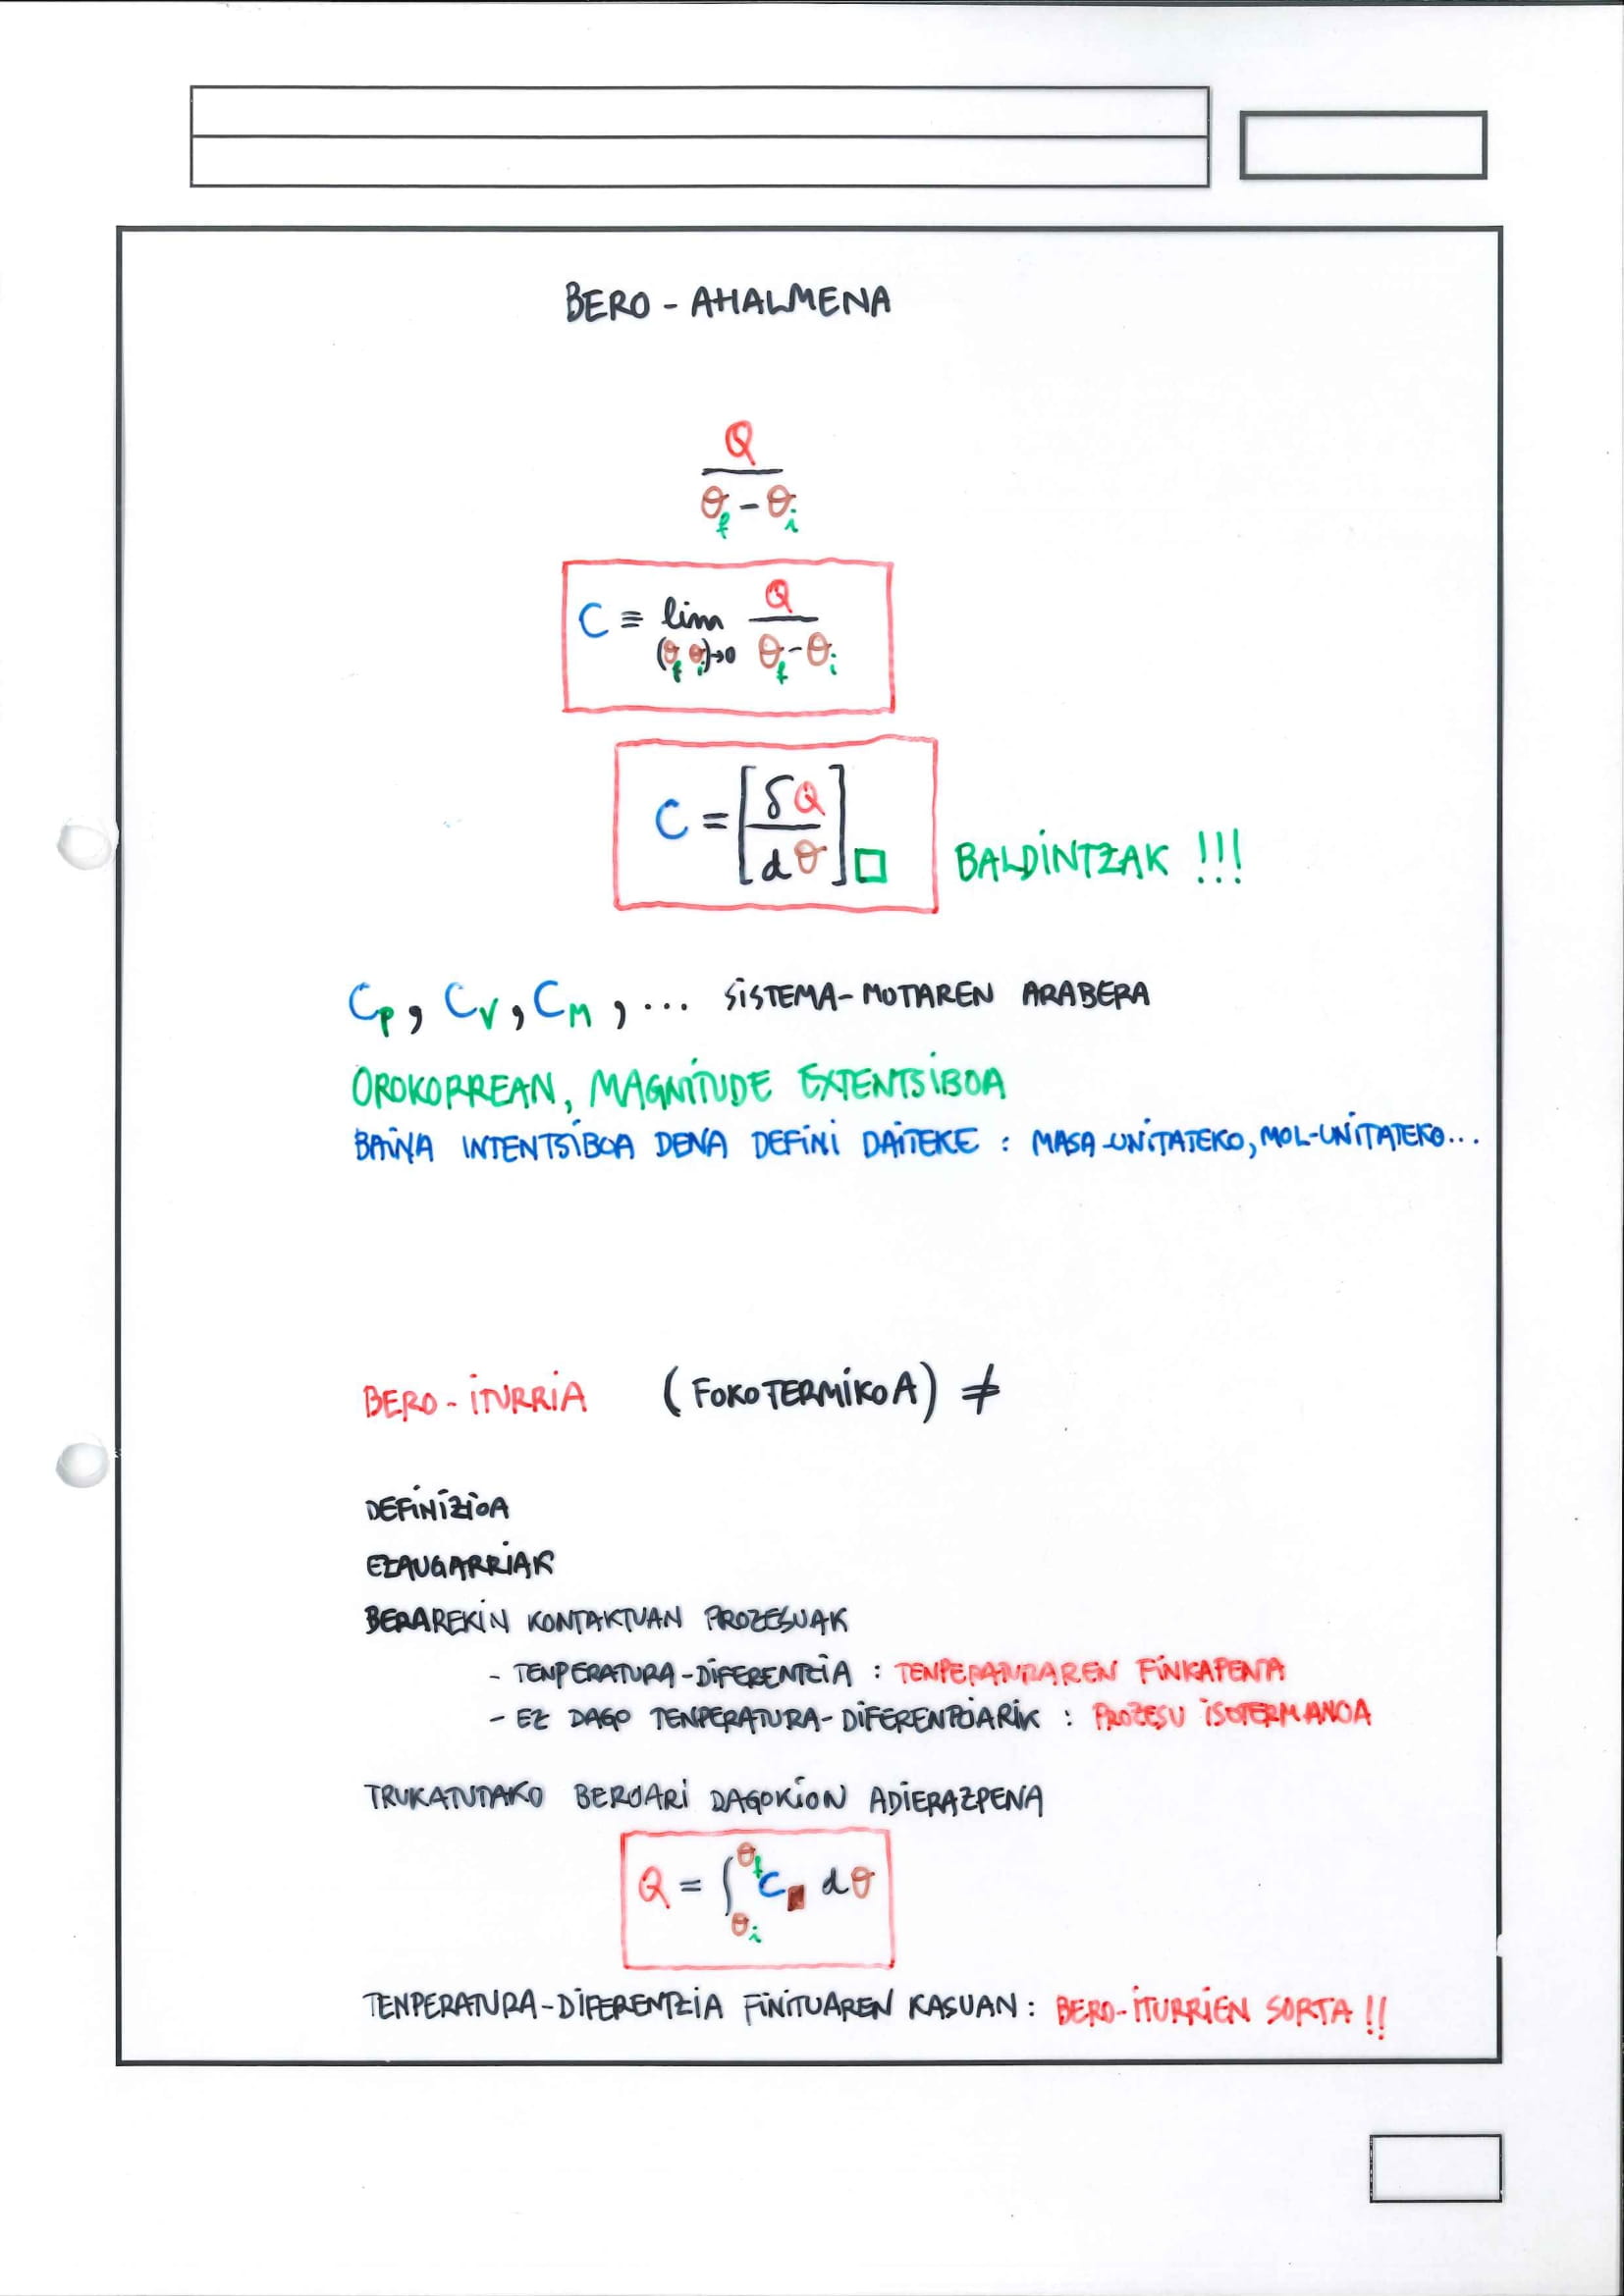 BERO - AHALMENA
Q
θf - θi
C ≡ lim Q
(θf θi)→0 θf - θi
C = [δQ / dθ]□ BALDINTZAK !!!
CP, CV, CM, ... SISTEMA-MOTAREN ARABERA
OROKORREAN, MAGNITUDE EXTENTSIBOA
BAINA INTENTSIBOA DENA DEFINI DAITEKE : MASA-UNITATEKO, MOL-UNITATEKO...
BERO - ITURRIA (FOKO TERMIKOA) ≠
DEFINIZIOA
EZAUGARRIAK
BERAREKIN KONTAKTUAN PROZESUAK
- TENPERATURA-DIFERENTZIA : TENPERATURAREN FINKAPENA
- EZ DAGO TENPERATURA-DIFERENTZIARIK : PROZESU ISOTERMANOA
TRUKATUTAKO BEROARI DAGOKION ADIERAZPENA
Q = ∫θi θf C■ dθ
TENPERATURA-DIFERENTZIA FINITUAREN KASUAN : BERO-ITURRIEN SORTA !!